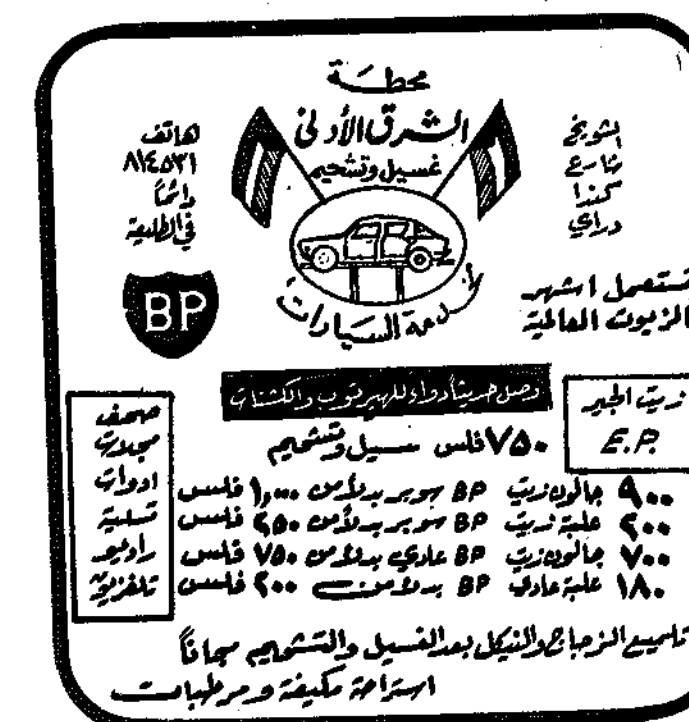 محطة
الشرق الأدنى
غسيل وتشحيم
هاتف
٨١٤٥٣١
دائماً
في الطليعة
الشويخ
شارع
كندا
دراي
لخدمة السيارات
BP
تستعمل اشهر
الزيوت العالمية
وصل حديثاً دواء للهيرتوب والكشنات
زيت الجير
E.P.
صحف
مجلات
ادوات
تسلية
راديو
تلفزيون
٧٥٠ فلس غسيل وتشحيم
٩٠٠ جالون زيت BP سوبر بدلاً من ١,٠٠٠ فلس
٢٠٠ علبة زيت BP سوبر بدلاً من ٢٥٠ فلس
٧٠٠ جالون زيت BP عادي بدلاً من ٧٥٠ فلس
١٨٠ علبة عادي BP بدلاً من ٢٠٠ فلس
تلميع الزجاج والنيكل بعد الغسيل والتشحيم مجاناً
استراحة مكيفة ومرطبات